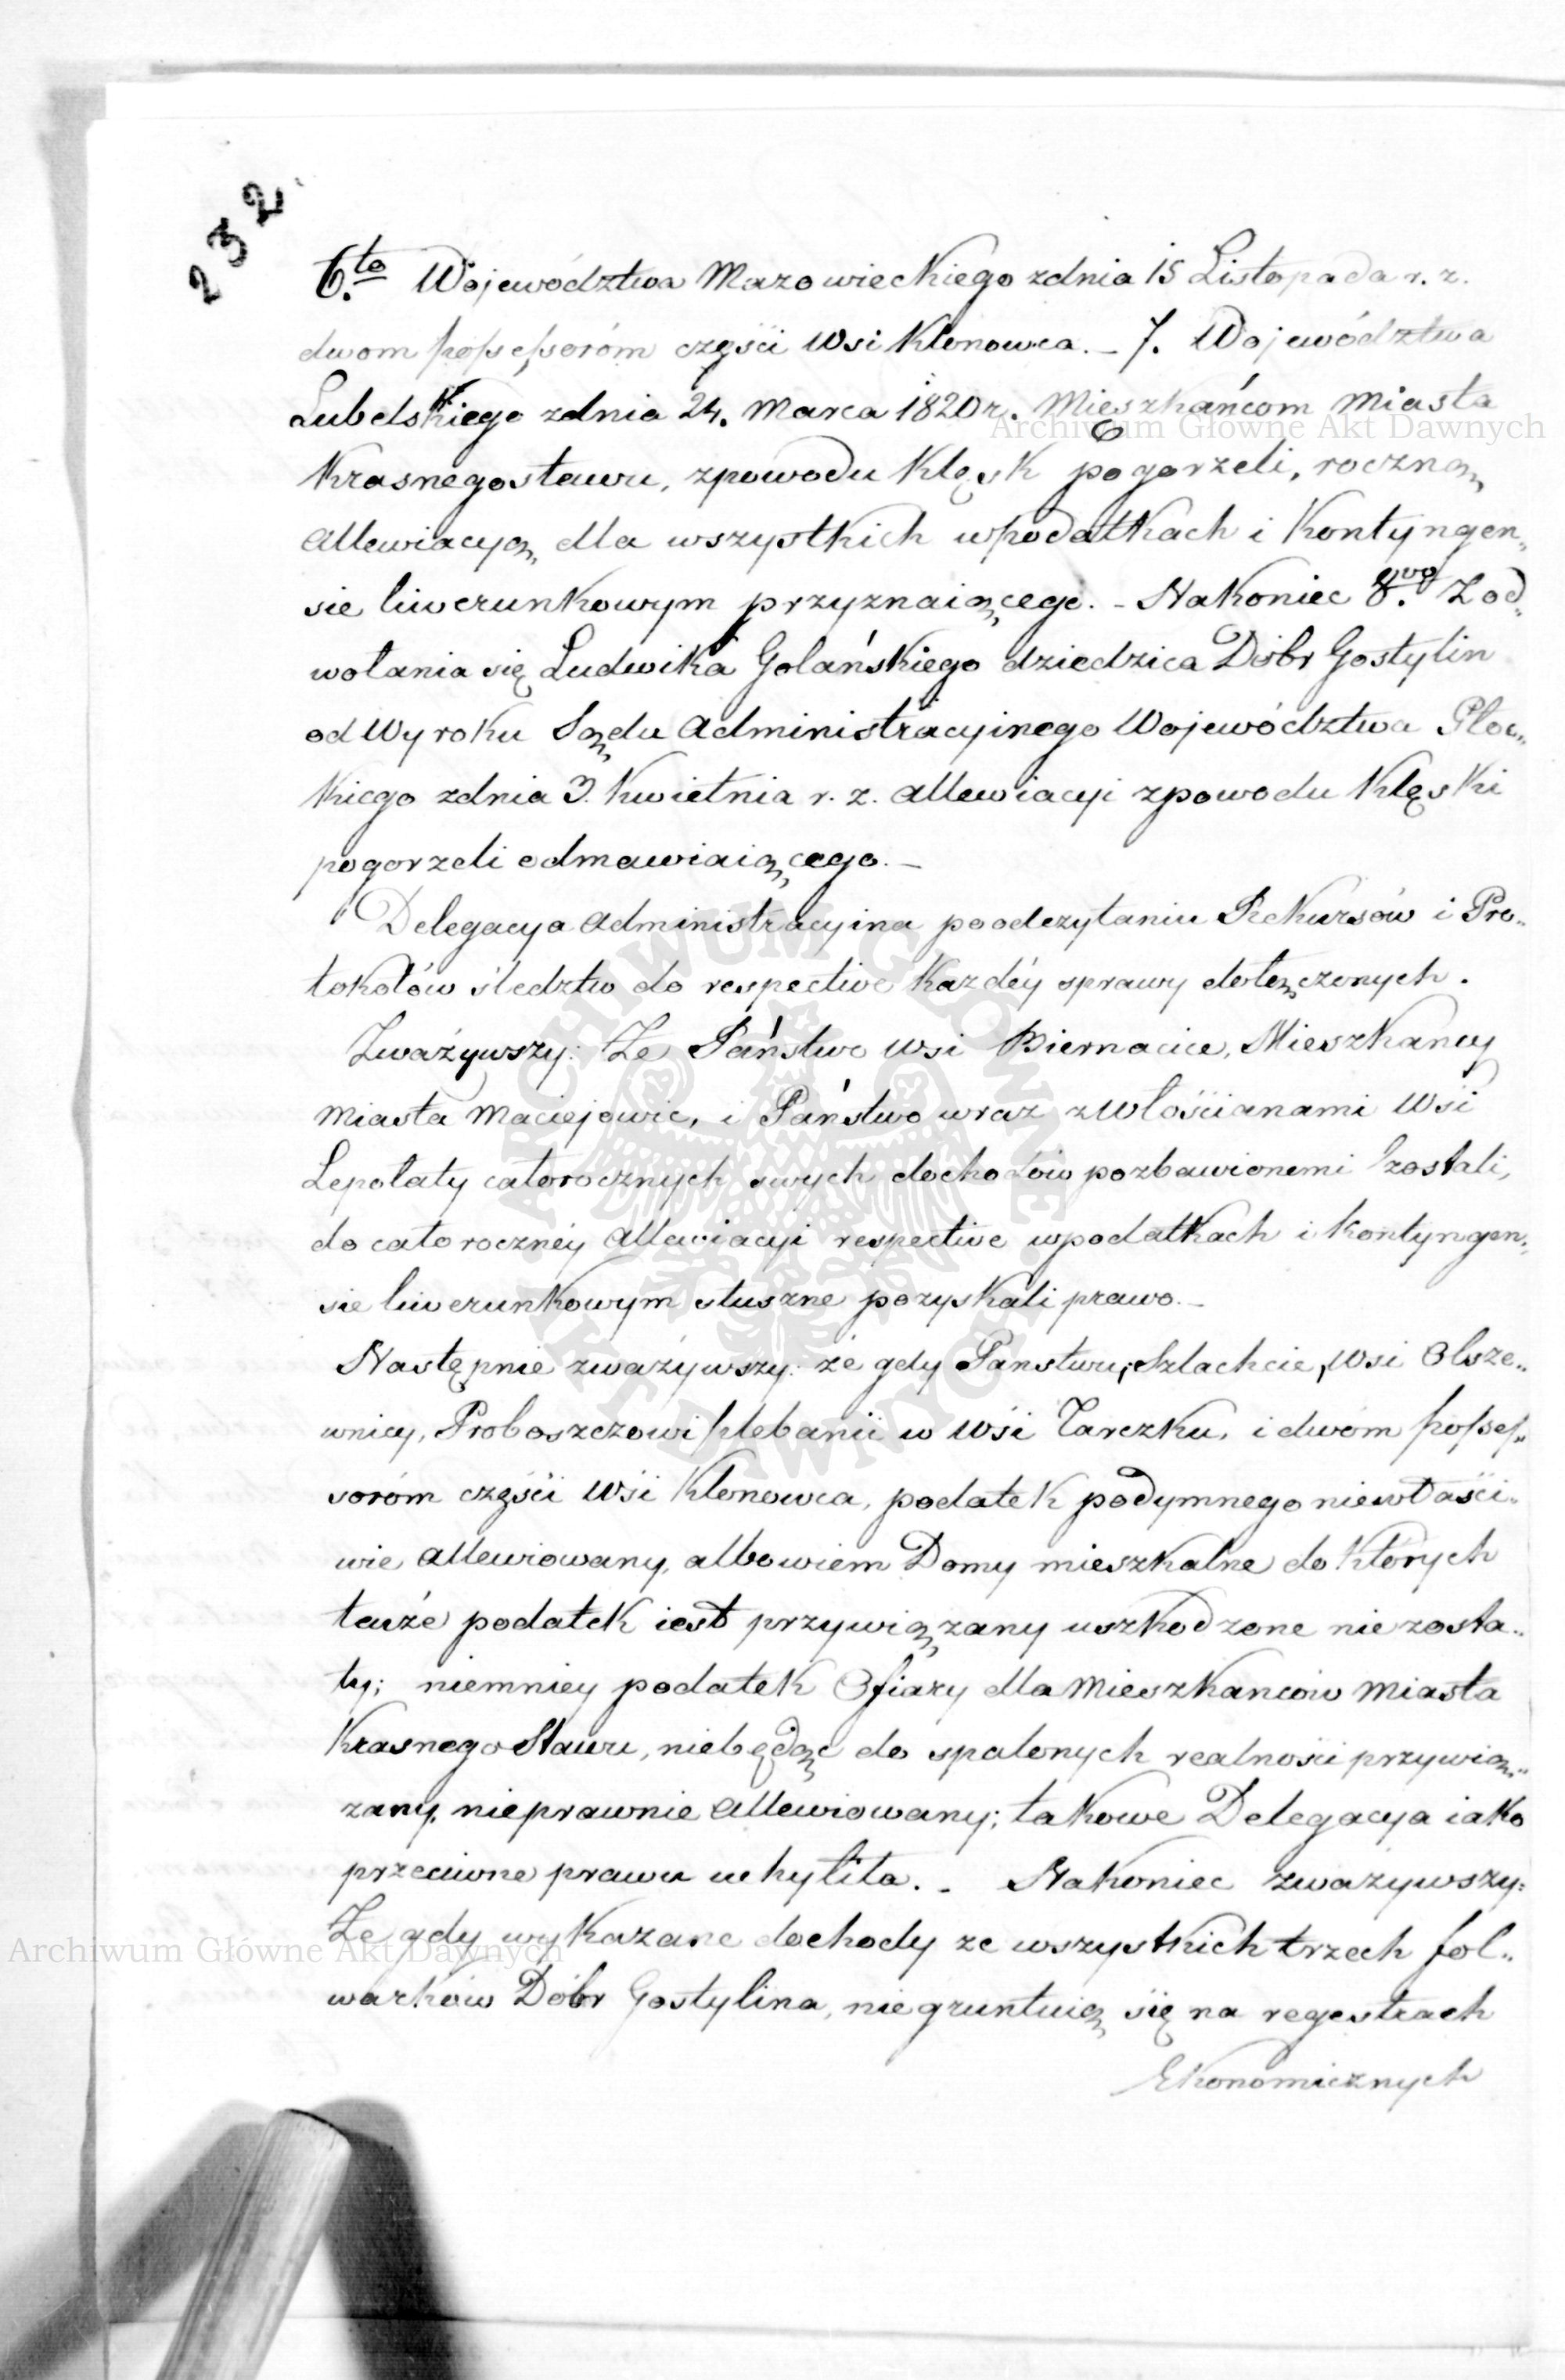 232
6.to Województwa Mazowieckiego zdnia 15 Listopada r. z.
dwom possessoróm części Wsi Klonowca. – 7. Województwa
Lubelskiego zdnia 24. Marca 1820 r. Mieszkańcom Miasta
Krasnegostawu, zpowodu Klęsk pogorzeli, roczną
allewiacyą dla wszystkich wpodatkach i Kontyngen„
sie liwerunkowym przyznaiącego. – Nakoniec 8.vo Zod„
wołania się Ludwika Golańskiego dziedzica Dóbr Gostylin
od Wyroku Sądu Administracyinego Województwa Płoc„
kiego zdnia 3. Kwietnia r. z. allewiacyi zpowodu Klęski
pogorzeli odmawiaiącego. –
Delegacya Administracyina poodczytaniu Rekursów i Pro„
tokołów śledztw do respective Każdéy sprawy dołączonych.
Zważywszy: Że Państwo Wsi Biernacice, Mieszkancy
Miasta Maciejowic, i Państwo wraz zWłościanami Wsi
Lepolaty całorocznych swych dochodów pozbawionemi zostali,
do całorocznéy allewiacyi respective wpodatkach i kontyngen„
sie liwerunkowym słuszne pozyskali prawo. –
Następnie zważywszy: że gdy Panstwu, Szlachcie, Wsi Olsze„
wnicy, Proboszczowi plebanii w Wsi Tarczku, i dwóm posses„
soróm części Wsi Klonowca, podatek podymnego niewłaści„
wie allewiowany, albowiem Domy mieszkalne do których
tenże podatek iest przywiązany uszkodzone nie zosta„
ły; niemniey podatek Ofiary dla Mieszkanców Miasta
Krasnego Stawu, niebędąc do spalonych realności przywią„
zany, nieprawnie allewiowany; takowe Delegacya iako
przeciwne prawu uchyliła. – Nakoniec zważywszy:
Że gdy wykazane dochody ze wszystkich trzech fol„
warków Dóbr Gostylina, niegruntuią się na regestrach
Ekonomicznych
Archiwum Główne Akt Dawnych
Archiwum Główne Akt Dawnych
ARCHIWUM GŁÓWNE AKT DAWNYCH